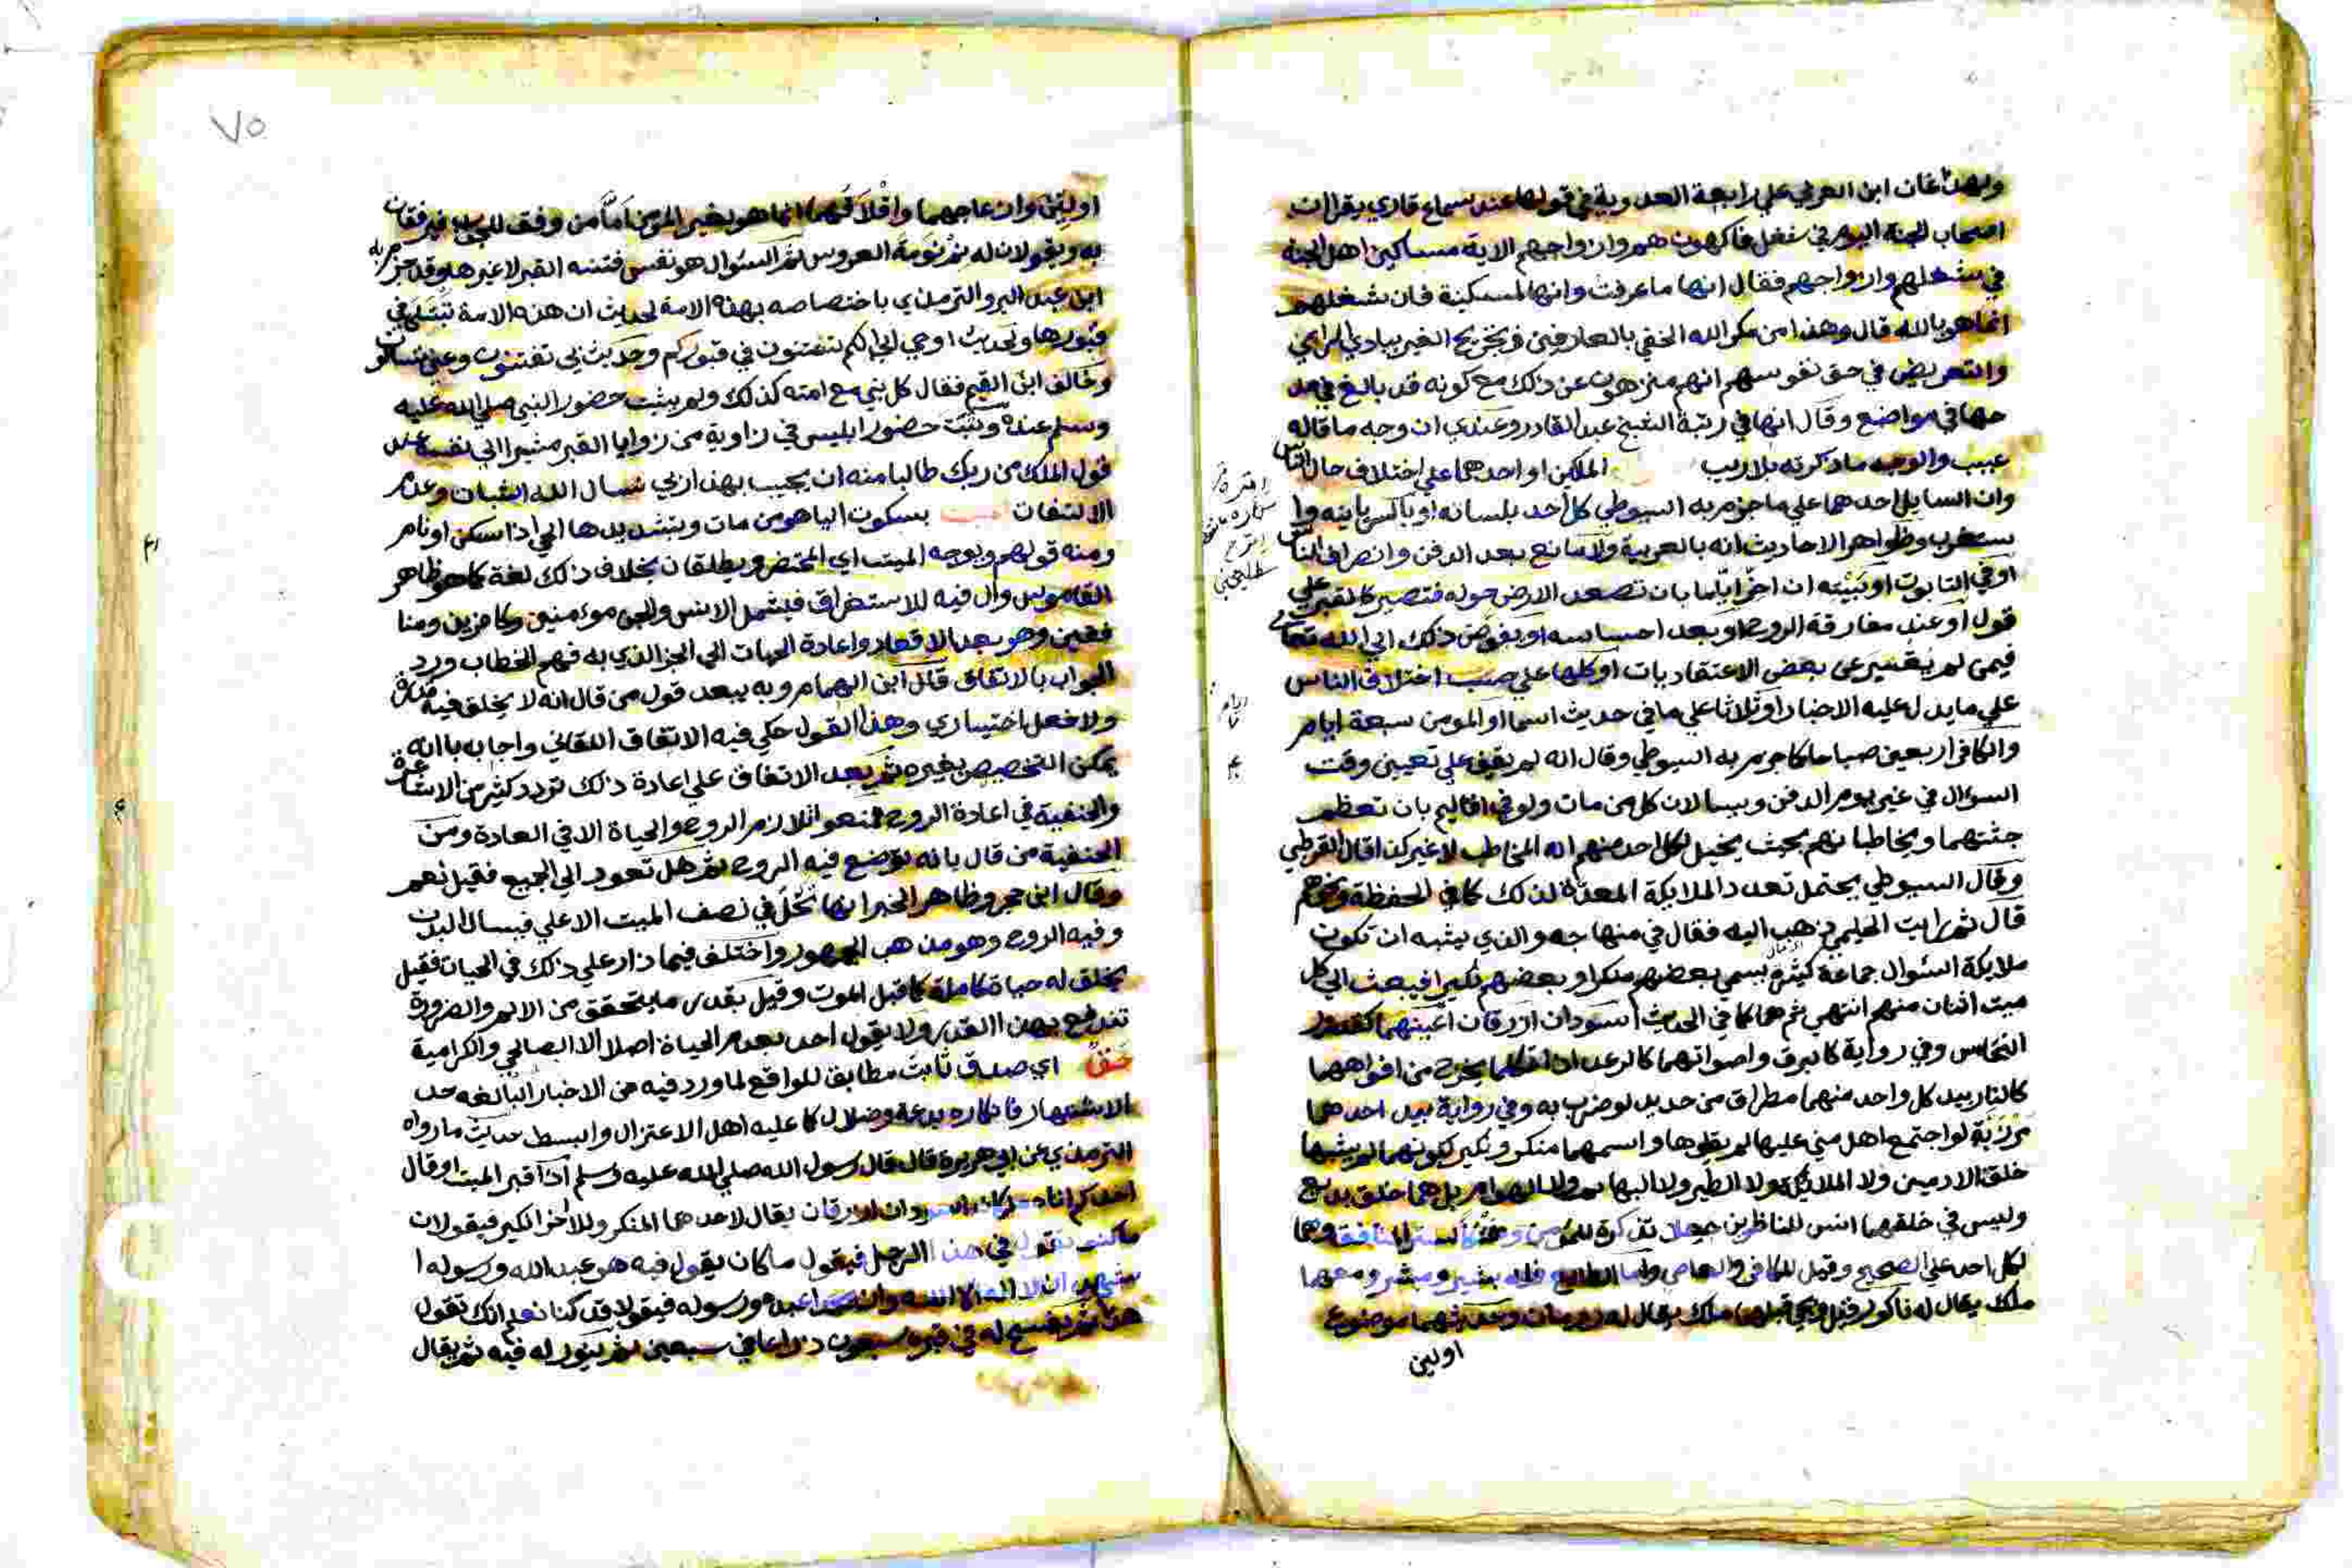 وبهذا غان ابن العربي علي رابعة العدوية في قولها عند سماع قاري يقرا ان
اصحاب الجنة اليوم في شغل فاكهون هم وازواجهم الاية مساكين اهل الجنة
في شغلهم وازواجهم فقال انها ما عرفت وانها لمسكينة فان شغلهم
انما هو بالله قال وهذا من مكر الله الخفي بالعارفين في تجريح الغير ببادي الراي
والتعريض في حق نفوسهم انهم منزهون عن ذلك مع كونه قد بالغ في مد
حها في مواضع وقال انها في رتبة الشيخ عبد القادر وعندي ان وجه ما قاله
عجيب والوجه ما ذكرته بلا ريب الملكين او احدهما علي اختلاف حال الناس
وان السايل احدهما علي ما جزم به السيوطي كل احد بلسانه او بالسريانيه وا
ستغرب وظواهر الاحاديث انه بالعربية ولا مانع بعد الدفن وانصراف الناس
او في التابوت او بيته ان اخر اياما بان تصعد الارض حوله فتصير كالقبر علي
قول او عند مفارقة الروح او بعد احساسه او يفوض ذلك الي الله تعالي
فيمن لم يقبر عن بعض الاعتقاديات او كلها علي حسب اختلاف الناس
علي ما يدل عليه الاخبار او ثلاثا علي ما في حديث اسما او المومن سبعة ايام
والكافر اربعين صباحا كما جزم به السيوطي وقال انه لم يقف علي تعيين وقت
السوال في غير يوم الدفن ويسالان كل من مات ولو في اقاليم بان تعظم
جثتهما ويخاطبانهم بحيث يخيل لكل احد منهم انه المخاطب لا غير كذا قال القرطبي
وقال السيوطي يحتمل تعدد الملايكة المعدة لذلك كما في الحفظة ونحوهم
قال ثم رايت الحليمي ذهب اليه فقال في منهاجه والذي يشبه ان تكون
ملايكة السوال جماعة كثيرة يسمي بعضهم منكرا وبعضهم نكيرا فيبعث الي كل
ميت اثنان منهم انتهي ثم هما كما في الحديث اسودان ازرقان اعينهما كقدور
النحاس وفي رواية كالبرق واصواتهما كالرعد اذا تكلما يخرج من افواههما
كالنار بيد كل واحد منهما مطراق من حديد لو ضرب به وفي رواية بيد احدهما
مرزبة لو اجتمع اهل مني عليها لم يقلوها واسمهما منكر ونكير لكونهما لم يشبها
خلق الادميين ولا الملايكة ولا الطير ولا البهايم ولا الهوام بل هما خلق بديع
وليس في خلقهما انس للناظرين جعلا تذكرة للمومن وهتكا لستر المنافق وهما
لكل احد علي الصحيح وقيل للكافر والعاصي واما الطايع فله بشير ومبشر ومعهما
ملك يقال له ناكور قيل ويجي قبلهما ملك يقال له رومان وحديثهما موضوع
اولين
٧٥
اولين وازعاجهما واقلاقهما انما هو لغير المومن اما من وفق للجواب فيرفقان
به ويقولان له نم نومة العروس ثم السوال هو نفس فتنة القبر لا غيرها وقد جزم
ابن عبد البر والترمذي باختصاصه بهذه الامة لحديث ان هذه الامة تبتلي في
قبورها ولحديث اوحي الي انكم تفتنون في قبوركم وحديث بي تفتنون وعني تسالون
وخالف ابن القيم فقال كل نبي مع امته كذلك ولم يثبت حضور النبي صلي الله عليه
وسلم عنده وثبت حضور ابليس في زاوية من زوايا القبر مشيرا الي نفسه عند
قول الملك من ربك طالبا منه ان يجيب بهذا ربي نسال الله الثبات وعدم
الالتفات الميت بسكون الياء هو من مات وبتشديدها الحي اذا سكن او نام
ومنه قولهم ويوجه الميت اي المحتضر ويطلقان بخلاف ذلك لغة كما هو ظاهر
القاموس وال فيه للاستغراق فيشمل الانس والجن مومنين وكافرين ومنا
فقين وهو بعد الاقعاد واعادة الحيات الي الجز الذي به فهم الخطاب ورد
الجواب بالاتفاق قال ابن الهمام وبه يبعد قول من قال انه لا يخلق فيه قدرة
ولا فعل اختياري وهذا القول حكي فيه الاتفاق اللقاني واجاب بانه
يمكن التخصيص بغيره ثم بعد الاتفاق علي اعادة ذلك تردد كثير من الاشاعرة
والحنفية في اعادة الروح فمنعوا تلازم الروح والحياة الا في العادة ومن
الحنفية من قال بانه توضع فيه الروح ثم هل تعود الي الجميع فقيل نعم
وقال ابن حجر وظاهر الخبر انها تحل في نصف الميت الاعلي فيسال البدن
وفيه الروح وهو مذهب الجمهور واختلف فيما زاد علي ذلك في الحيات فقيل
يخلق له حياة كاملة كما قبل الموت وقيل بقدر ما يتحقق من الالم والضرورة
تندفع بهذا القدر ولا يقول احد بعدم الحياة اصلا الا الصالحي والكرامية
حق اي صدق ثابت مطابق للواقع لما ورد فيه من الاخبار البالغه حد
الاشتهار فانكاره بدعة وضلال كما عليه اهل الاعتزال والبسط حديث ما رواه
الترمذي عن ابي هريرة قال قال رسول الله صلي الله عليه وسلم اذا قبر الميت او قال
احدكم اتاه ملكان اسودان ازرقان يقال لاحدهما المنكر وللاخر النكير فيقولان
ما كنت تقول في هذا الرجل فيقول ما كان يقول فيه هو عبد الله ورسوله ا
شهد ان لا اله الا الله وان محمدا عبده ورسوله فيقولا قد كنا نعلم انك تقول
هذا ثم يفسح له في قبره سبعون ذراعا في سبعين ثم ينور له فيه ثم يقال